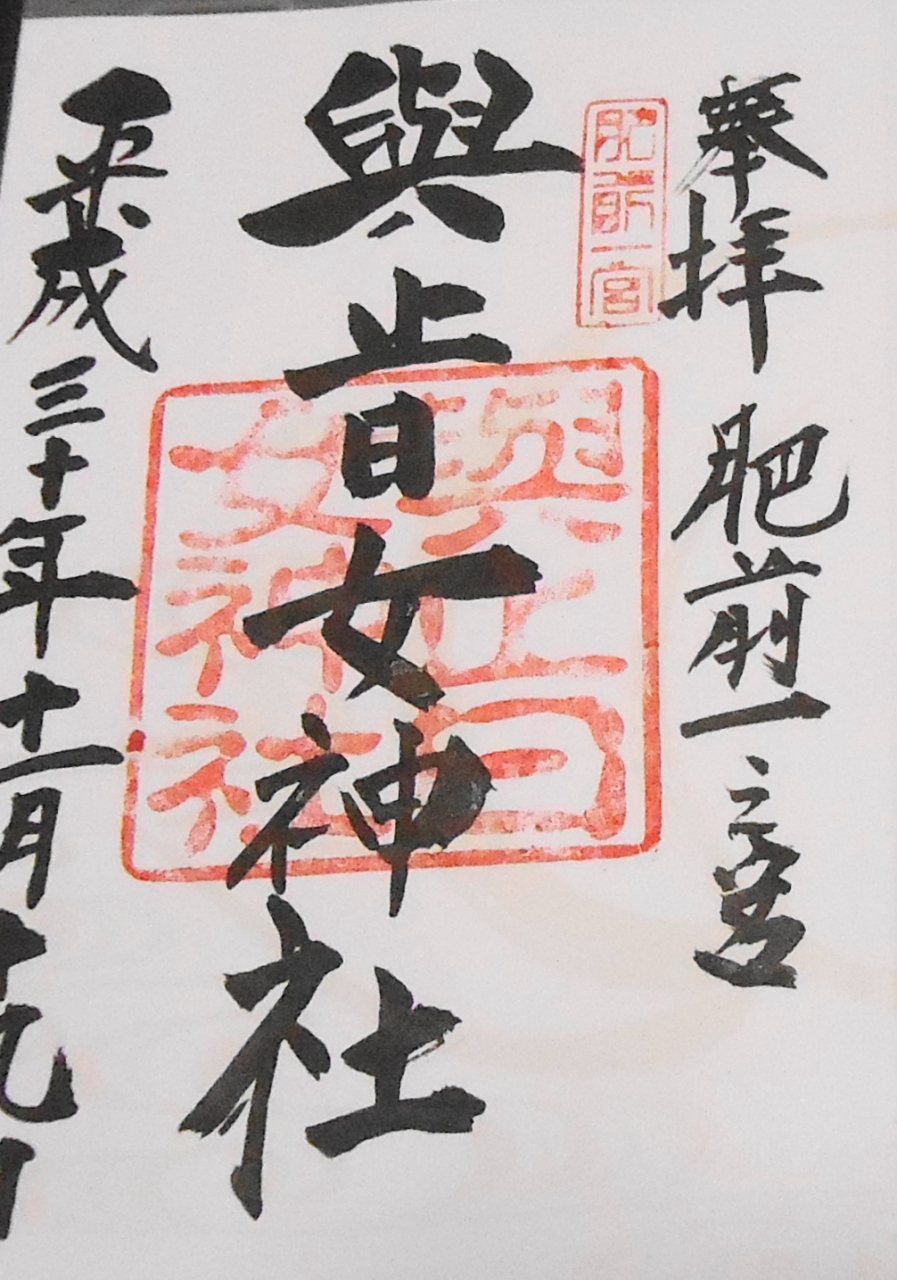 奉拝 肥前一之宮
肥前一宮
與止日女神社
與止日
女神社
平成三十年十一月十九日